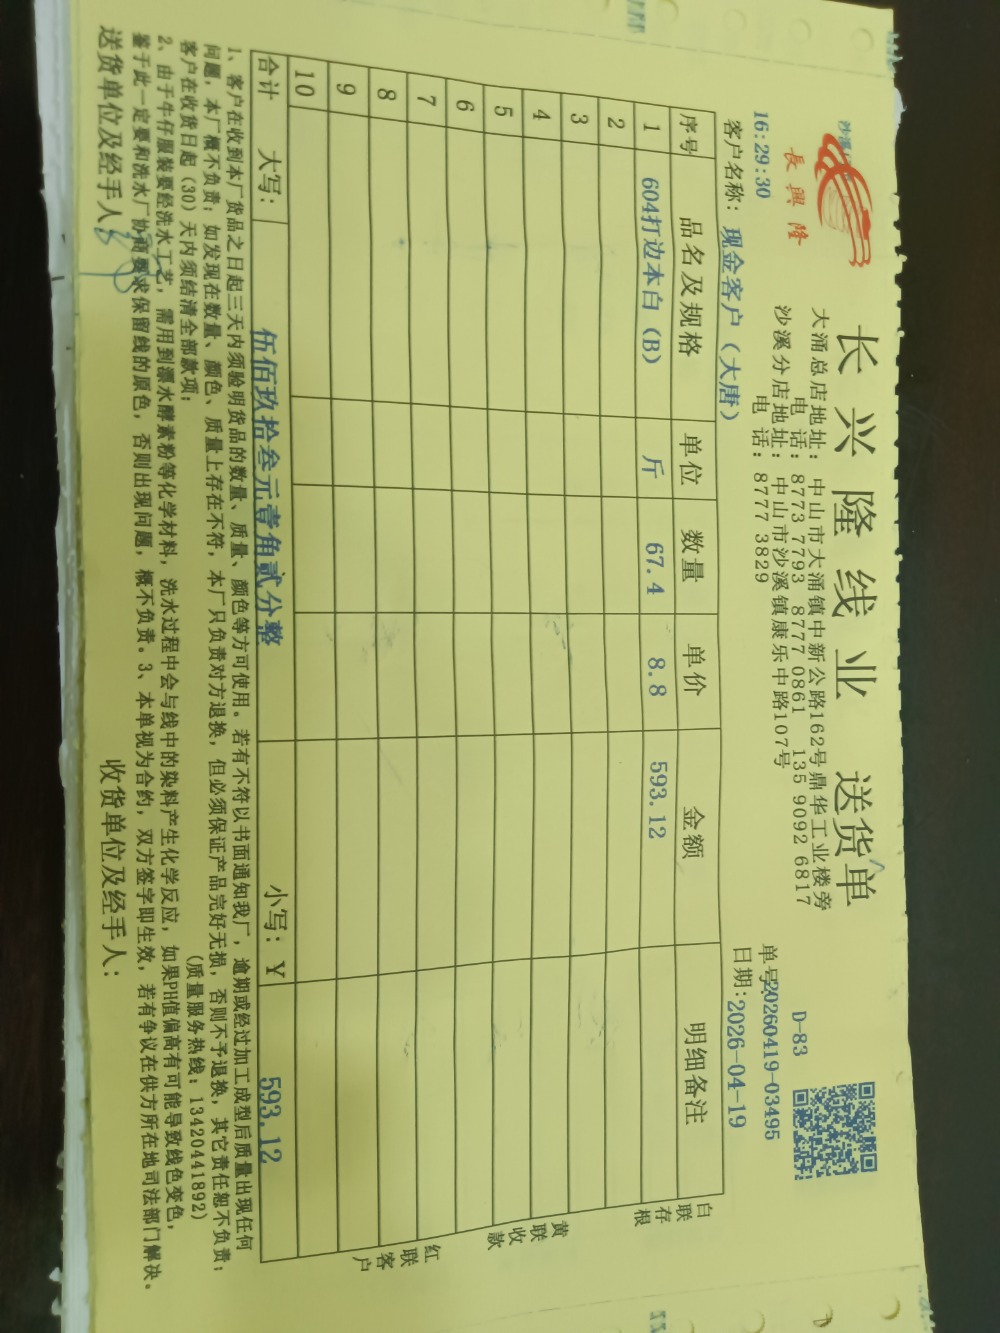 沙溪
長興隆
长兴隆线业 送货单
大涌总店地址：中山市大涌镇中新公路162号鼎华工业楼旁
电 话：8773 7793 8777 0861 135 9092 6817
沙溪分店地址：中山市沙溪镇康乐中路107号
电 话：8777 3829
D-83
16:29:30
单号:20260419-03495
客户名称：现金客户（大唐）
日期:2026-04-19
序号 品名及规格 单位 数量 单价 金额 明细备注
1 604打边本白（B） 斤 67.4 8.8 593.12
2
3
4
5
6
7
8
9
10
合计 大写：伍佰玖拾叁元壹角贰分整 小写：Y 593.12
白联存根
黄联收款
红联客户
1、客户在收到本厂货品之日起三天内须验明货品的数量、质量、颜色等方可使用。若有不符以书面通知我厂，逾期或经过加工成型后质量出现任何
问题，本厂概不负责；如发现在数量、颜色、质量上存在不符，本厂只负责对方退换，但必须保证产品完好无损，否则不予退换，其它责任恕不负责；
客户在收货日起（30）天内须结清全部款项； （质量服务热线：13420441892）
2、由于牛仔服装要经洗水工艺，需用到漂水酵素粉等化学材料，洗水过程中会与线中的染料产生化学反应，如果PH值偏高有可能导致线色变色，
鉴于此一定要和洗水厂协商要求保留线的原色，否则出现问题，概不负责。3、本单视为合约，双方签字即生效，若有争议在供方所在地司法部门解决。
送货单位及经手人： 收货单位及经手人：